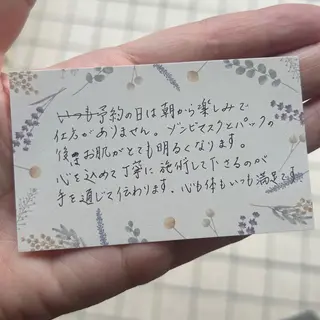 いつも予約の日は朝から楽しみで
仕方がありません。ゾンビマスクとパックの
後はお肌がとても明るくなります。
心を込めて丁寧に施術して下さるのが
手を通じて伝わります。心も体もいつも満足です